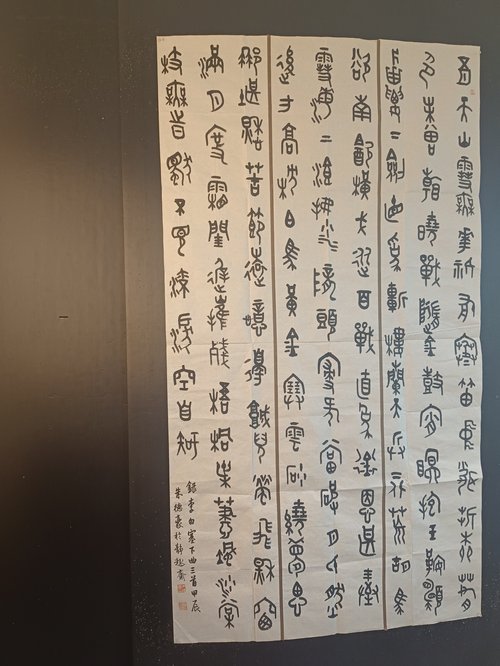 五月天山雪無花祇有寒笛中聞折柳春
色未曾看曉戰隨金鼓宵眠抱玉鞍願
將腰下劍直為斬樓蘭天兵下北荒胡馬
欲南飲橫戈從百戰直為銜恩甚握
雪海上餐拂沙隴頭寢何當破月氏然
後方高枕白馬黃金塞雲砂繞夢思
那堪愁苦節遠憶邊城兒螢飛秋窗
滿月度霜閨遲摧殘梧桐葉蕭颯沙棠
枝無時獨不見淚流空自知
錄李白塞下曲三首甲辰
朱德豪於靜